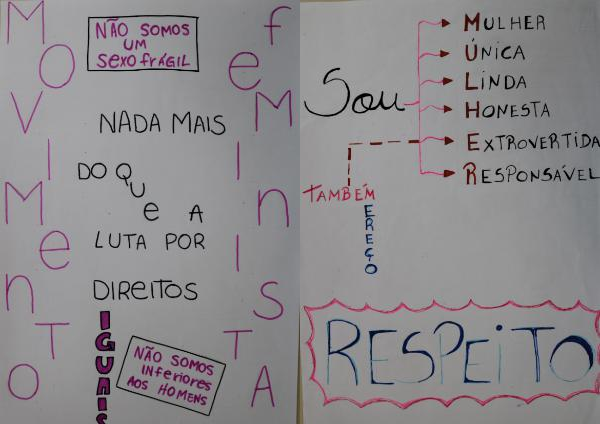 MOVIMeNTO
feMInISTA
NÃO SOMOS
UM
SexO fRÁGIL
NADA MAIS
DO QUe A
LUTA POR
DIREITOS
IGUAIS
NÃO SOMOS
INfeRIORES
AOS HOMENS
Sou
MULHER
ÚNICA
LINDA
HONESTA
EXTROVERTIDA
RESPONSÁVEL
TAMBÉM
EREÇO
RESPEITO